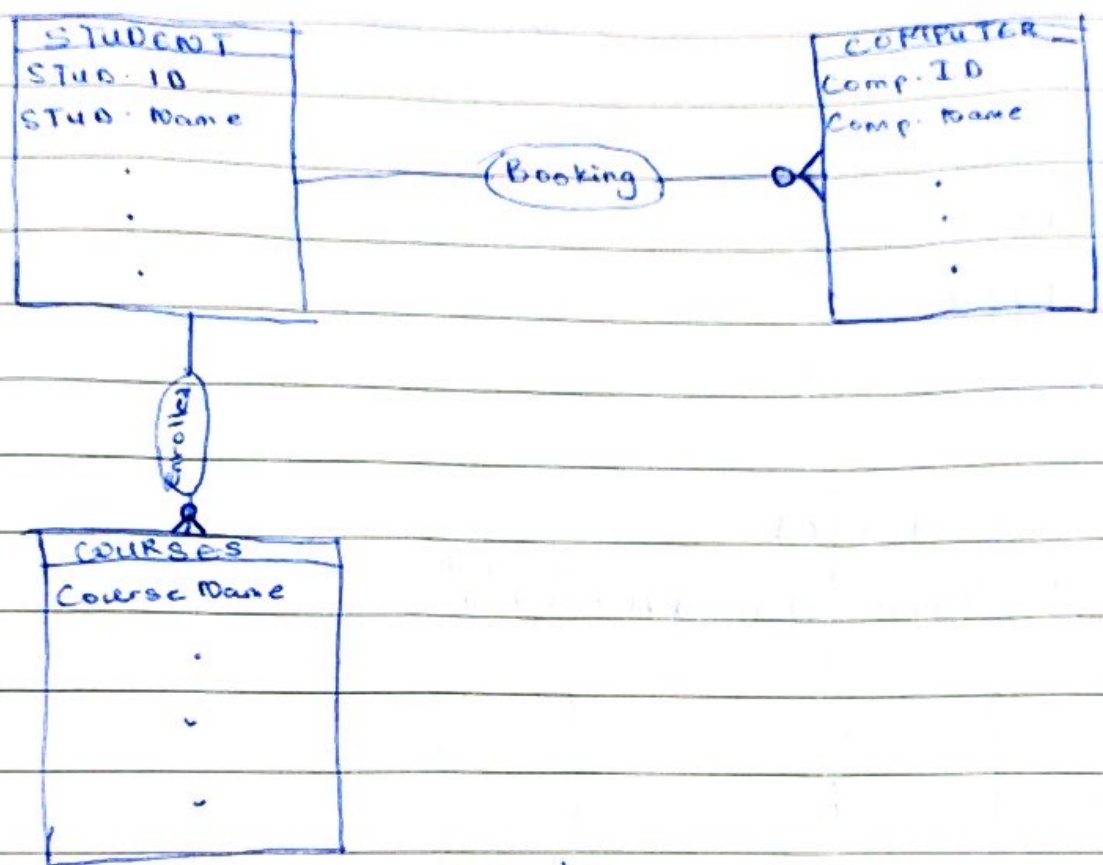 STUDENT
STUD. ID
STUD. Name
Booking
COMPUTER
Comp. ID
Comp. Name
Enrolled
COURSES
Course Name